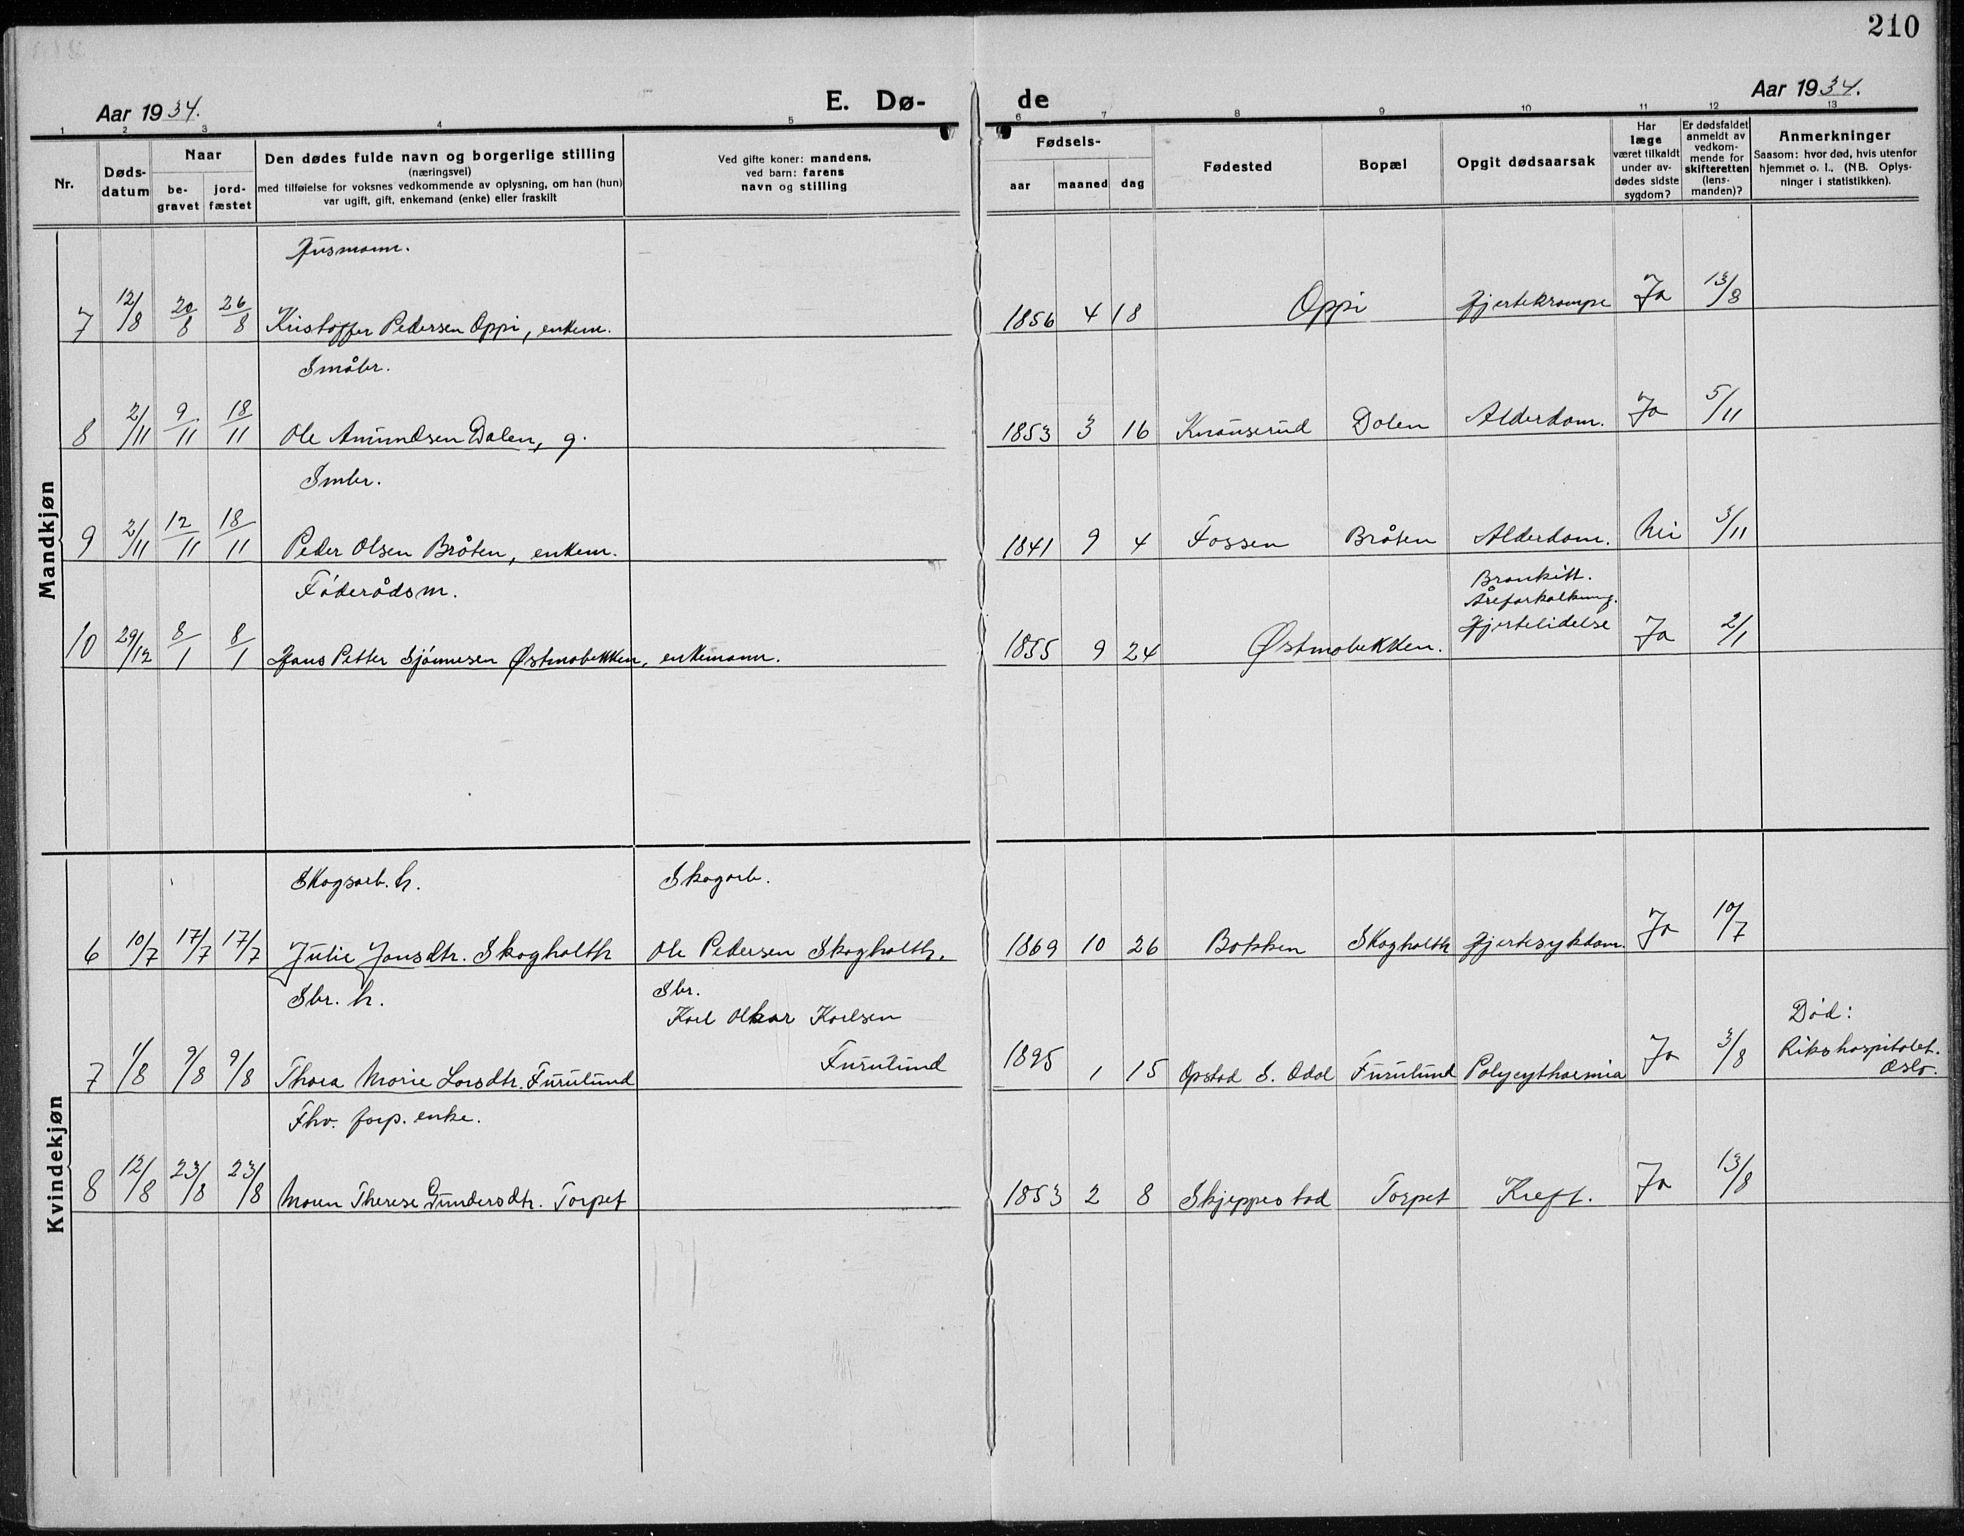 210
Aar 1934.
E. Dø-
de
Aar 1934.
1 2 3 4 5 6 7 8 9 10 11 12 13
Nr.
Døds-
datum
Naar
be-
gravet
jord-
fæstet
Den dødes fulde navn og borgerlige stilling
(næringsvei)
med tilføielse for voksnes vedkommende av oplysning, om han (hun)
var ugift, gift, enkemand (enke) eller fraskilt
Ved gifte koner: mandens,
ved barn: farens
navn og stilling
Fødsels-
aar maaned dag
Fødested
Bopæl
Opgit dødsaarsak
Har
læge
været tilkaldt
under av-
dødes sidste
sygdom?
Er dødsfaldet
anmeldt av
vedkom-
mende for
skifteretten
(lens-
manden)?
Anmerkninger
Saasom: hvor død, hvis utenfor
hjemmet o. l., (NB. Oplys-
ninger i statistikken).
Mandkjøn
Husmann.
7 12/8 20/8 26/8 Kristoffer Pedersen Oppi, enkem. 1856 4 18 Oppi Hjertekrampe Ja 13/8
Småbr.
8 2/11 9/11 18/11 Ole Amundsen Dalen, g. 1853 3 16 Knauserud Dalen Alderdom. Ja 5/11
Smbr.
9 2/11 12/11 18/11 Peder Olsen Bråten, enkem. 1841 9 4 Fossen Bråten Alderdom. Nei 3/11
Føderådsm.
Bronkitt.
Åreforkalkning.
Hjertelidelse
10 29/12 8/1 8/1 Hans Petter Sjønnesen Østmobekken, enkemann. 1855 9 24 Østmobekken. Ja 2/1
Kvindekjøn
Skogsarb. h. Skogarb.
6 10/7 17/7 17/7 Julie Jansdtr. Skogholth Ole Pedersen Skogholth. 1869 10 26 Bakken Skogholth Hjertesykdom. Ja 10/7
Sbr. h. Sbr.
Karl Oskar Karlsen
Furulund
Død:
Rikshospitalet.
Oslo.
7 1/8 9/8 9/8 Thora Marie Larsdtr. Furulund 1895 1 15 Opstad S. Odal Furulund Polycythaemia Ja 3/8
Fhv. forp. enke.
8 12/8 23/8 23/8 Maren Therese Gundersdtr. Torpet 1853 2 8 Skjeppestad Torpet Kreft. Ja 13/8